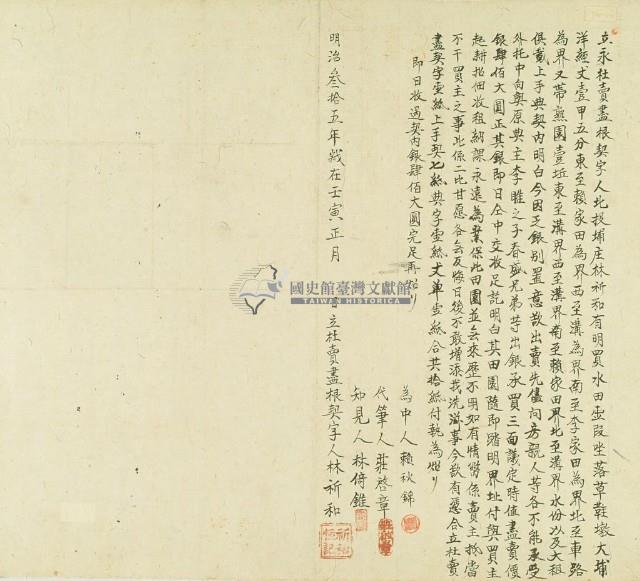 立永杜賣盡根契字人北投埔庄林祈和有明買水田壹段坐落草鞋墩大埔
洋經丈壹甲五分東至賴家田為界西至溝為界南至李家田為界北至車路
為界又帶熟園壹坵東至溝界西至溝界南至賴家田界北至溝界水份以及大租
俱載上手典契內明白今因乏銀別置意欲出賣先儘問房親人等各不能承受
外托中向與原典主李睢之子春盛兄弟等出銀承買三面議定時值盡賣價
銀肆佰大圓正其銀即日仝中交收足訖明白其田園隨即踏明界址付與買主
起耕招佃收租納課永遠為業保此田園並無來歷不明如有情弊係賣主抵當
不干買主之事此係二比甘愿各無反悔日後不敢增添找洗滋事今欲有憑合立杜賣
盡契字壹紙上手契七紙典字壹紙丈單壹紙合共拾紙付執為炤
即日收過契內銀肆佰大圓完足再炤
為中人 賴秋錦
代筆人 莊啓章
知見人 林倚錐
明治叁拾五年歲在壬寅正月 日立杜賣盡根契字人林祈和
國史館臺灣文獻館
TAIWAN HISTORICA